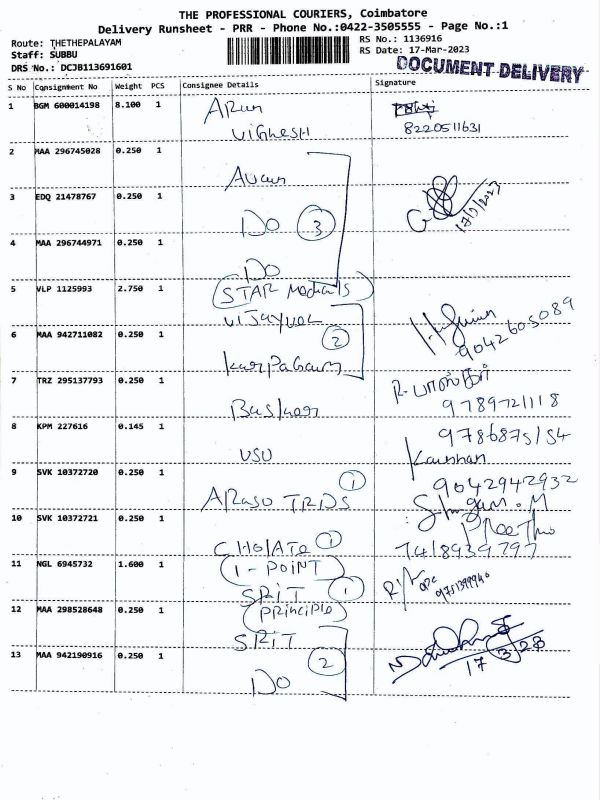 THE PROFESSIONAL COURIERS, Coimbatore
Delivery Runsheet - PRR - Phone No.:0422-3505555 - Page No.:1
Route: THETHEPALAYAM RS No.: 1136916
Staff: SUBBU RS Date: 17-Mar-2023
DRS No.: DCJB113691601 DOCUMENT DELIVERY
S No Consignment No Weight PCS Consignee Details Signature
1 BGM 600014198 8.100 1 Arun
Vighesh 8220511631
2 MAA 296745028 0.250 1
3 EDQ 21478767 0.250 1 17/3/2023
DO 3
4 MAA 296744971 0.250 1
DO
5 VLP 1125993 2.750 1 STAR Medicals
VIJAYVEL
6 MAA 942711082 0.250 1 2 9042605089
7 TRZ 295137793 0.250 1
9789721118
8 KPM 227616 0.145 1 9786875154
VSU
9 SVK 10372720 0.250 1 1 9042942932
ARASU TRDS
10 SVK 10372721 0.250 1
1 7418939797
11 NGL 6945732 1.600 1 1-POINT
SRIT 1
12 MAA 298528648 0.250 1 Principle
SRIT
13 MAA 942190916 0.250 1 2 17/3/23
DO